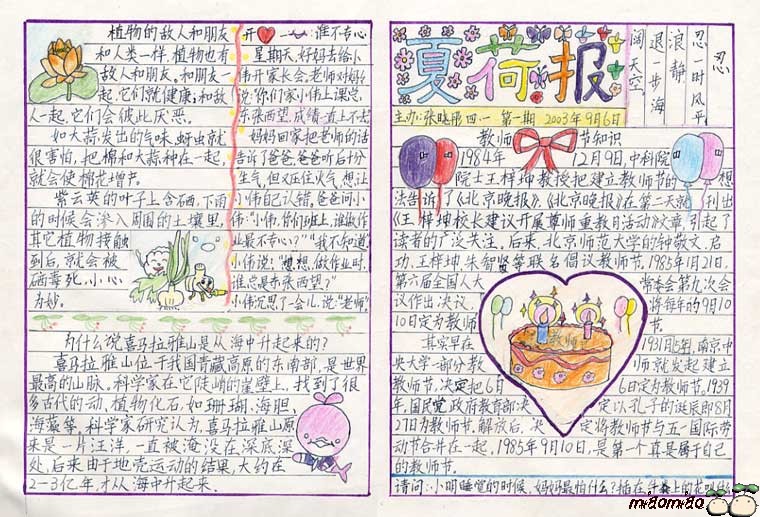 植物的敌人和朋友
和人类一样,植物也有
敌人和朋友。和朋友一
起,它们就健康;和敌
人一起,它们会彼此厌恶。
如大蒜发出的气味,蚜虫就
很害怕,把棉和大蒜种在一起,
就会使棉花增产。
紫云英的叶子上含硒,下雨
的时候会渗入周围的土壤里,
其它植物接触
到后,就会被
硒毒死,小心
为妙。
开心一 谁不专心
星期天,妈妈去给小
伟开家长会,老师对妈妈
说:“你们家小伟上课总
东张西望,成绩一直上不去
妈妈回家把老师的话
告诉了爸爸,爸爸听后十分
生气,但又压住火气,想让
小伟自己认错,爸爸问小
伟:“小伟,你们班上,谁做作
业最不专心?”“我不知道”
小伟说:“想想,做作业时,
谁总是东张西望?”
小伟沉思了一会儿,说:“老师”。
为什么说喜马拉雅山是从海中升起来的?
喜马拉雅山位于我国青藏高原的东南部,是世界
最高的山脉。科学家在它陡峭的崖壁上,找到了很
多古代的动、植物化石,如珊瑚、海胆、
海藻等,科学家研究认为,喜马拉雅山原
来是一片汪洋,一直被淹没在深底深
处,后来由于地壳运动的结果,大约在
2-3亿年才从海中升起来。
夏荷报
忍
忍一时风平
浪静
退一步海
阔天空
主办:张晓 四·一 第一期 2003年9月6日
教师节知识
1984年12月9日,中科院
院士王梓坤教授把建立教师节的想
法告诉了《北京晚报》,《北京晚报》在第二天就刊出
《王梓坤校长建议开展尊师重教月活动》文章,引起了
读者的广泛关注。后来,北京师范大学的钟敬文、启
功、王梓坤、朱智贤等联名倡议教师节。1985年1月21日,
第六届全国人大常委会第九次会
议作出决议,将每年的9月10
10日定为教师节。
其实早在1931年,南京中
央大学一部分教师就发起建立
教师节,决定把6月6日定为教师节。1939
年,国民党政府教育部决定以孔子的诞辰即8月
27日为教师节。解放后,决定将教师节与五一国际劳
动节合并在一起,1985年9月10日,是第一个真是属于自己
的教师节。
请问:小明睡觉的时候,妈妈最怕什么?
miaomiao